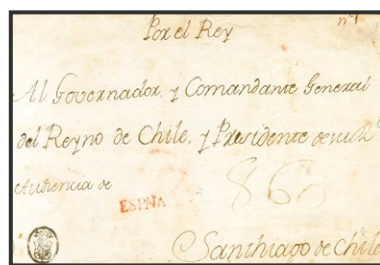 Por el Rey
nº1
Al Governador, y Comandante General
del Reyno de Chile, y Presidente de su Rl
Audiencia de
860
ESPNA
Santhiago de Chile